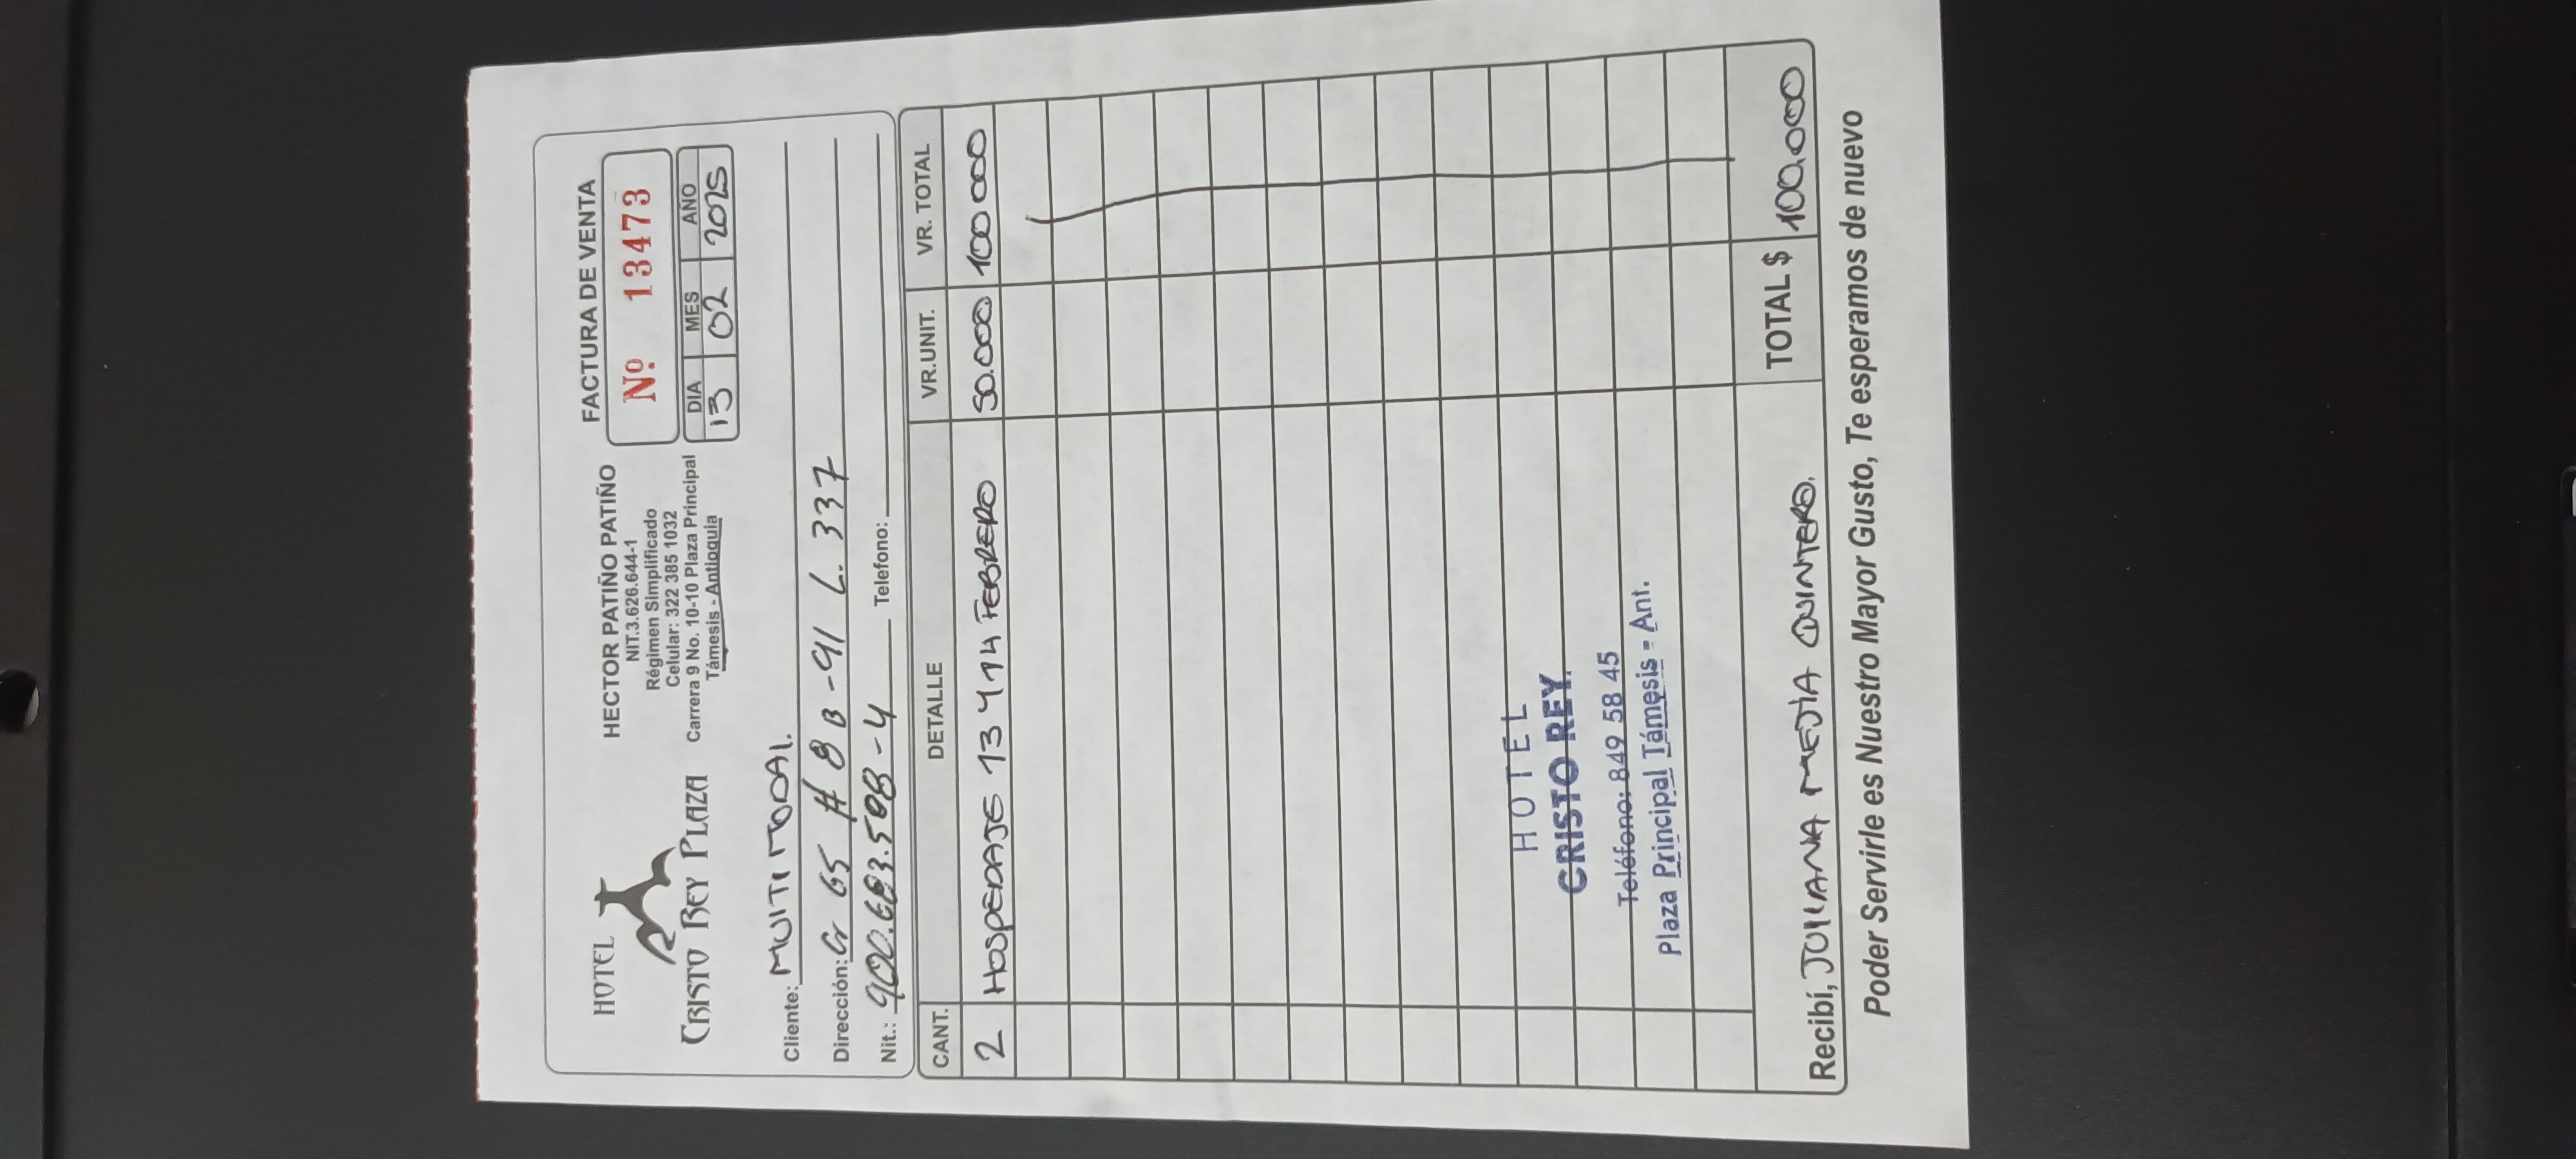 HOTEL
CRISTO REY PLAZA
HECTOR PATIÑO PATIÑO
NIT.3.626.644-1
Régimen Simplificado
Celular: 322 385 1032
Carrera 9 No. 10-10 Plaza Principal
Támesis - Antioquia
FACTURA DE VENTA
Nº 13473
DIA MES AÑO
13 02 2025
Cliente: MULTIMODAL
Dirección: Cr 65 # 8 B - 91 L. 337
Nit.: 900.683.508-4 Telefono:
CANT. DETALLE VR.UNIT. VR. TOTAL
2 HOSPEDAJE 13 Y 14 FEBRERO 50.000 100 000
HOTEL
CRISTO REY
Teléfono: 849 58 45
Plaza Principal Támesis - Ant.
TOTAL $ 100.000
Recibí, JULIANA MEJIA QUINTERO.
Poder Servirle es Nuestro Mayor Gusto, Te esperamos de nuevo